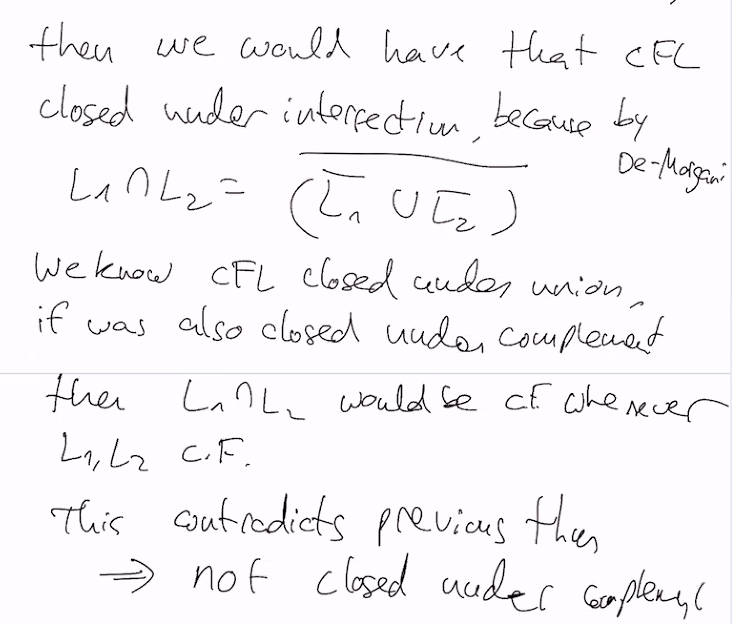 then we would have that CFL
closed under intersection, because by
De-Morgan:
L₁ ∩ L₂ = \overline{(\overline{L₁} ∪ \overline{L₂})}
We know CFL closed under union,
if was also closed under complement
then L₁ ∩ L₂ would be CF whenever
L₁, L₂ C.F.
This contradicts previous thm
⇒ not closed under complement